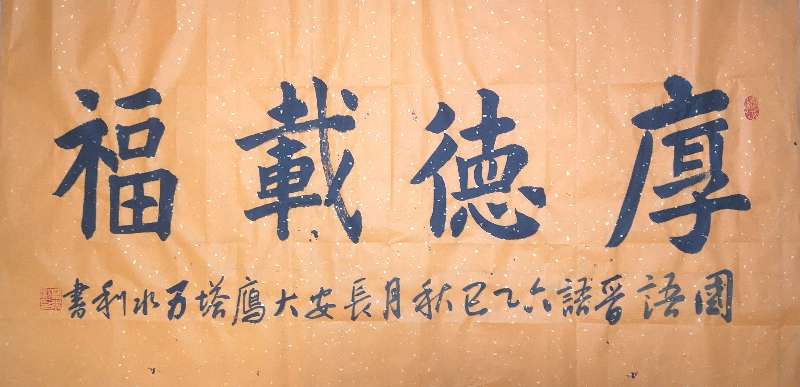 厚德載福
國語晉語六乙巳秋月長安大鴈塔万永利書